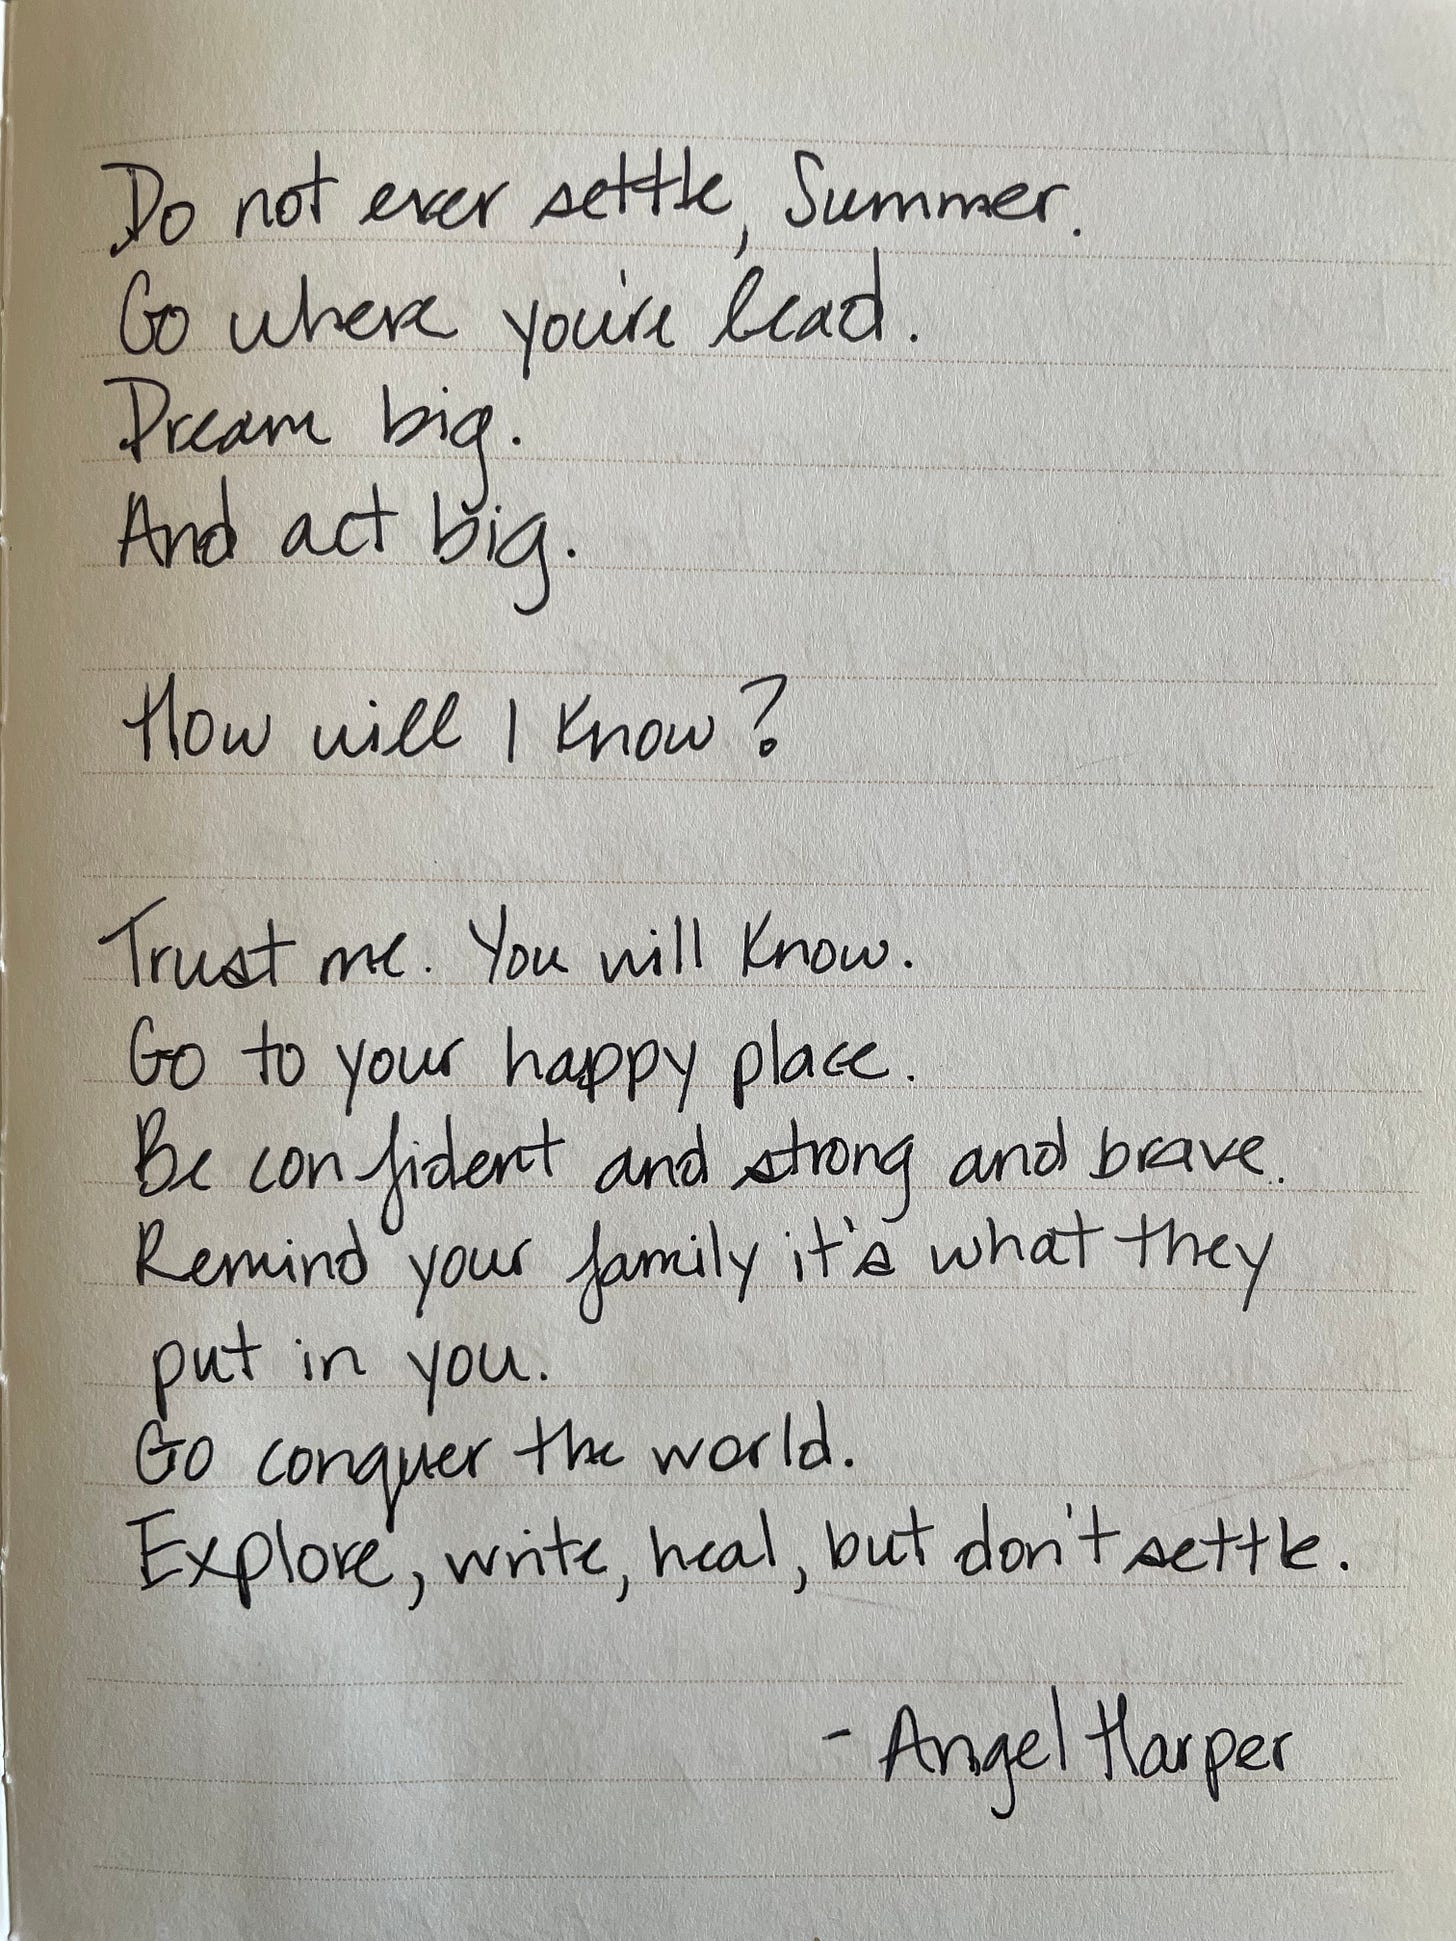 Do not ever settle, Summer.
Go where you're lead.
Dream big.
And act big.
How will I know?
Trust me. You will know.
Go to your happy place.
Be confident and strong and brave.
Remind your family it's what they
put in you.
Go conquer the world.
Explore, write, heal, but don't settle.
- Angel Harper